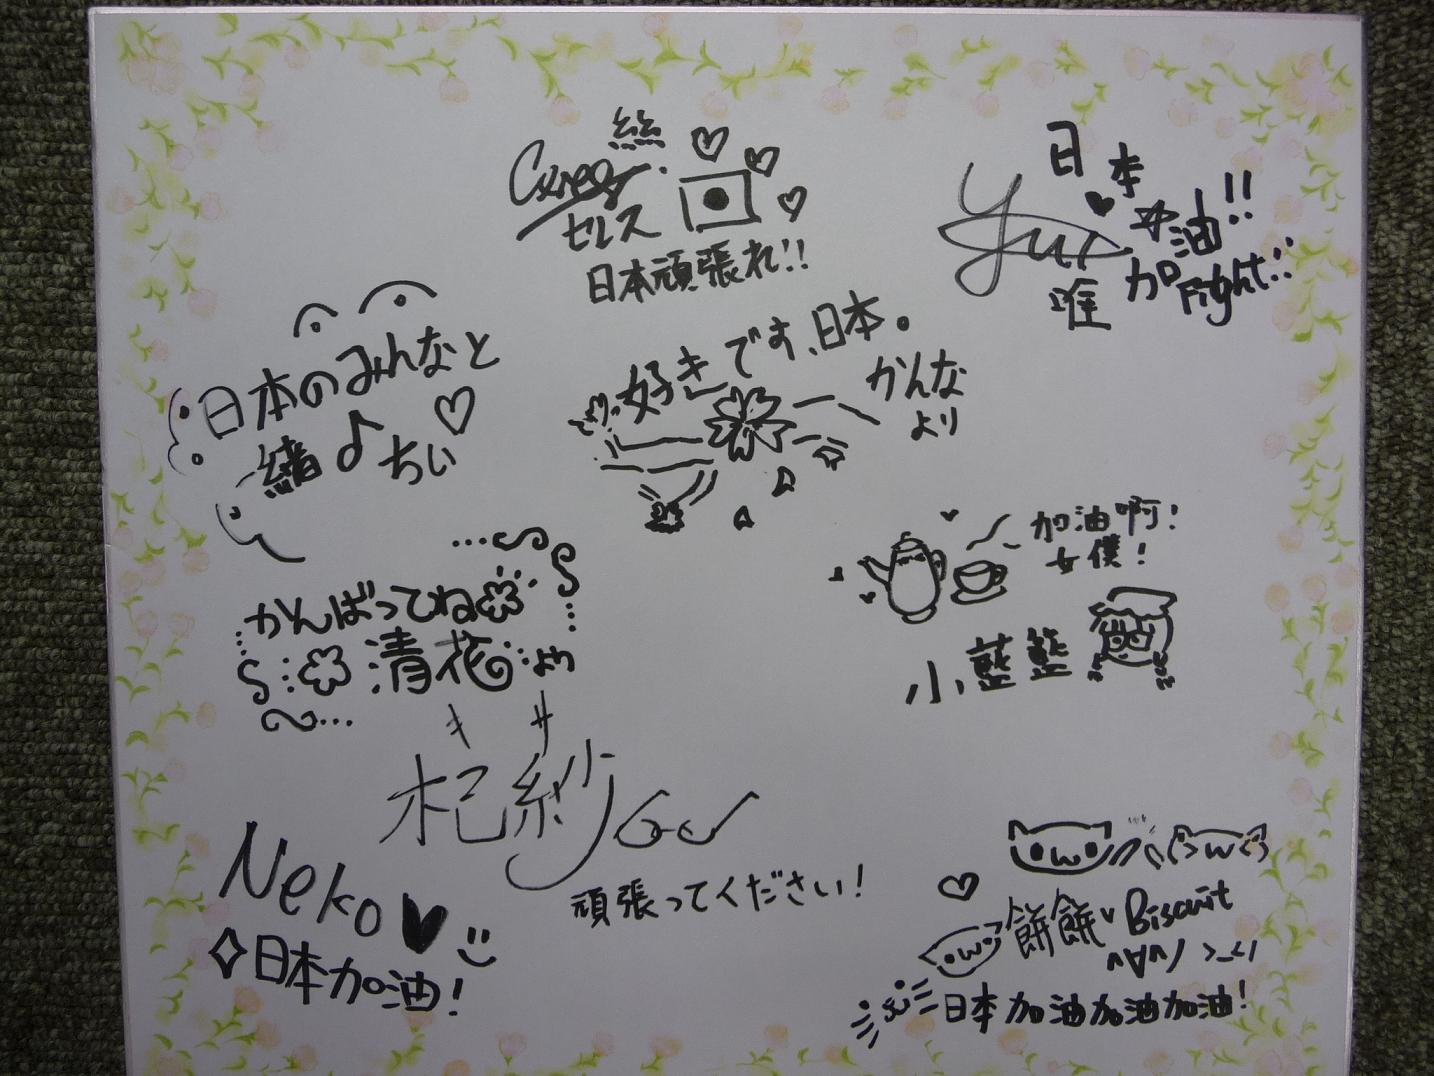 絲
セルス
日本頑張れ!!
日本
加油!!
Fight!!
Yui
唯
日本のみんなと
緒♪ちぃ♡
好きです、日本。
かんな
より
加油啊!
女僕!
小藍藍
かんばってね
清花
より
キ サ
杞紗
頑張ってください!
Neko
日本加油!
餅餅 Biscuit
^∀^ノ >_<
日本加油加油加油!